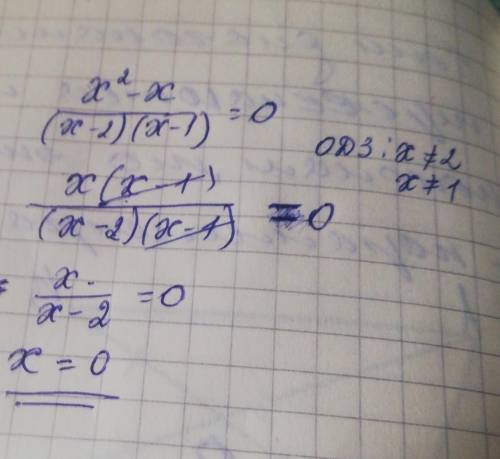 x² - x / (x-2)(x-1) = 0
ОДЗ: x ≠ 2
x ≠ 1
x(x-1) / (x-2)(x-1) = 0
= x / x-2 = 0
x = 0